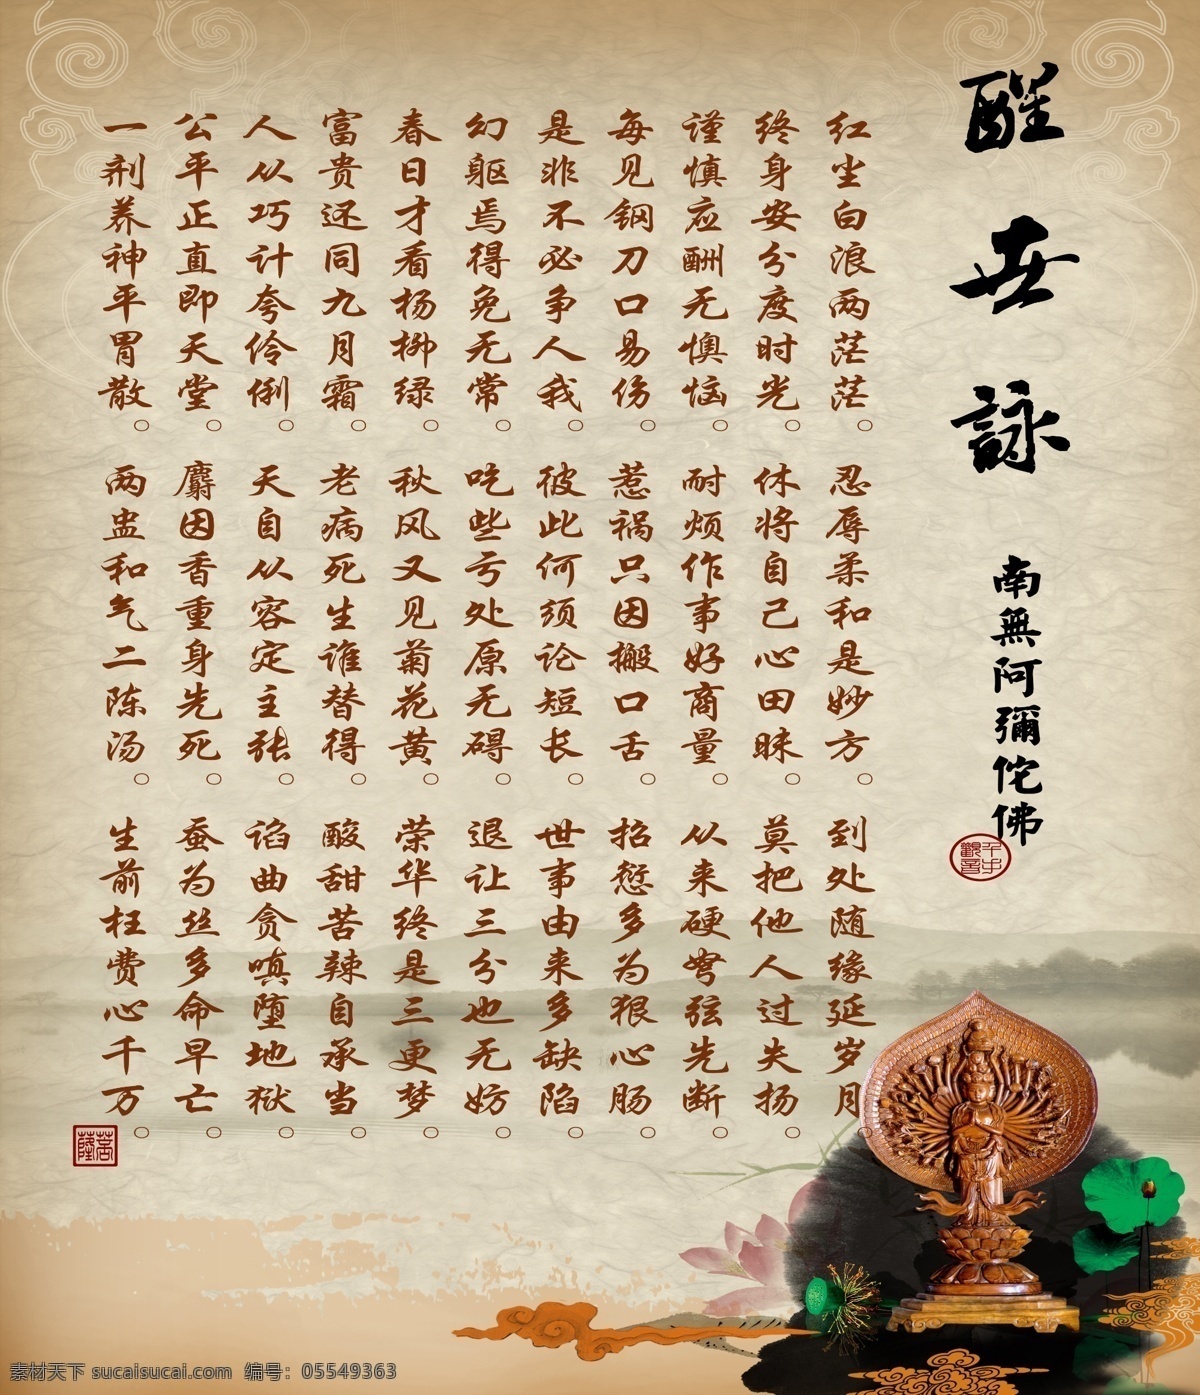 醒世詠
南無阿彌佗佛
红尘白浪两茫茫。忍辱柔和是妙方。到处随缘延岁月。
终身安分度时光。休将自己心田昧。莫把他人过失扬。
谨慎应酬无懊恼。耐烦作事好商量。从来硬弩弦先断。
每见钢刀口易伤。惹祸只因搬口舌。招愆多为狠心肠。
是非不必争人我。彼此何须论短长。世事由来多缺陷。
幻躯焉得免无常。吃些亏处原无碍。退让三分也无妨。
春日才看杨柳绿。秋风又见菊花黄。荣华终是三更梦。
富贵还同九月霜。老病死生谁替得。酸甜苦辣自承当。
人从巧计夸伶俐。天自从容定主张。谄曲贪嗔堕地狱。
公平正直即天堂。麝因香重身先死。蚕为丝多命早亡。
一剂养神平胃散。两盅和气二陈汤。生前枉费心千万。
素材天下 sucaisucai.com 编号：05549363